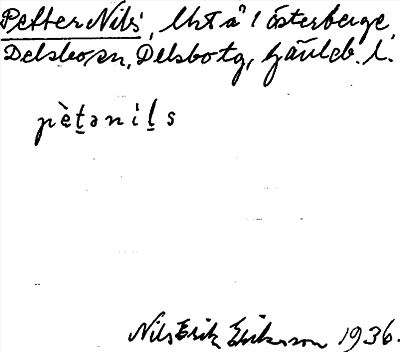 Petter Nils, Ukt å 1 Österberge
Delsbo sn, Delsbo tg, Gävleb. l.
pètənils
Nils Erik Eriksson 1936.